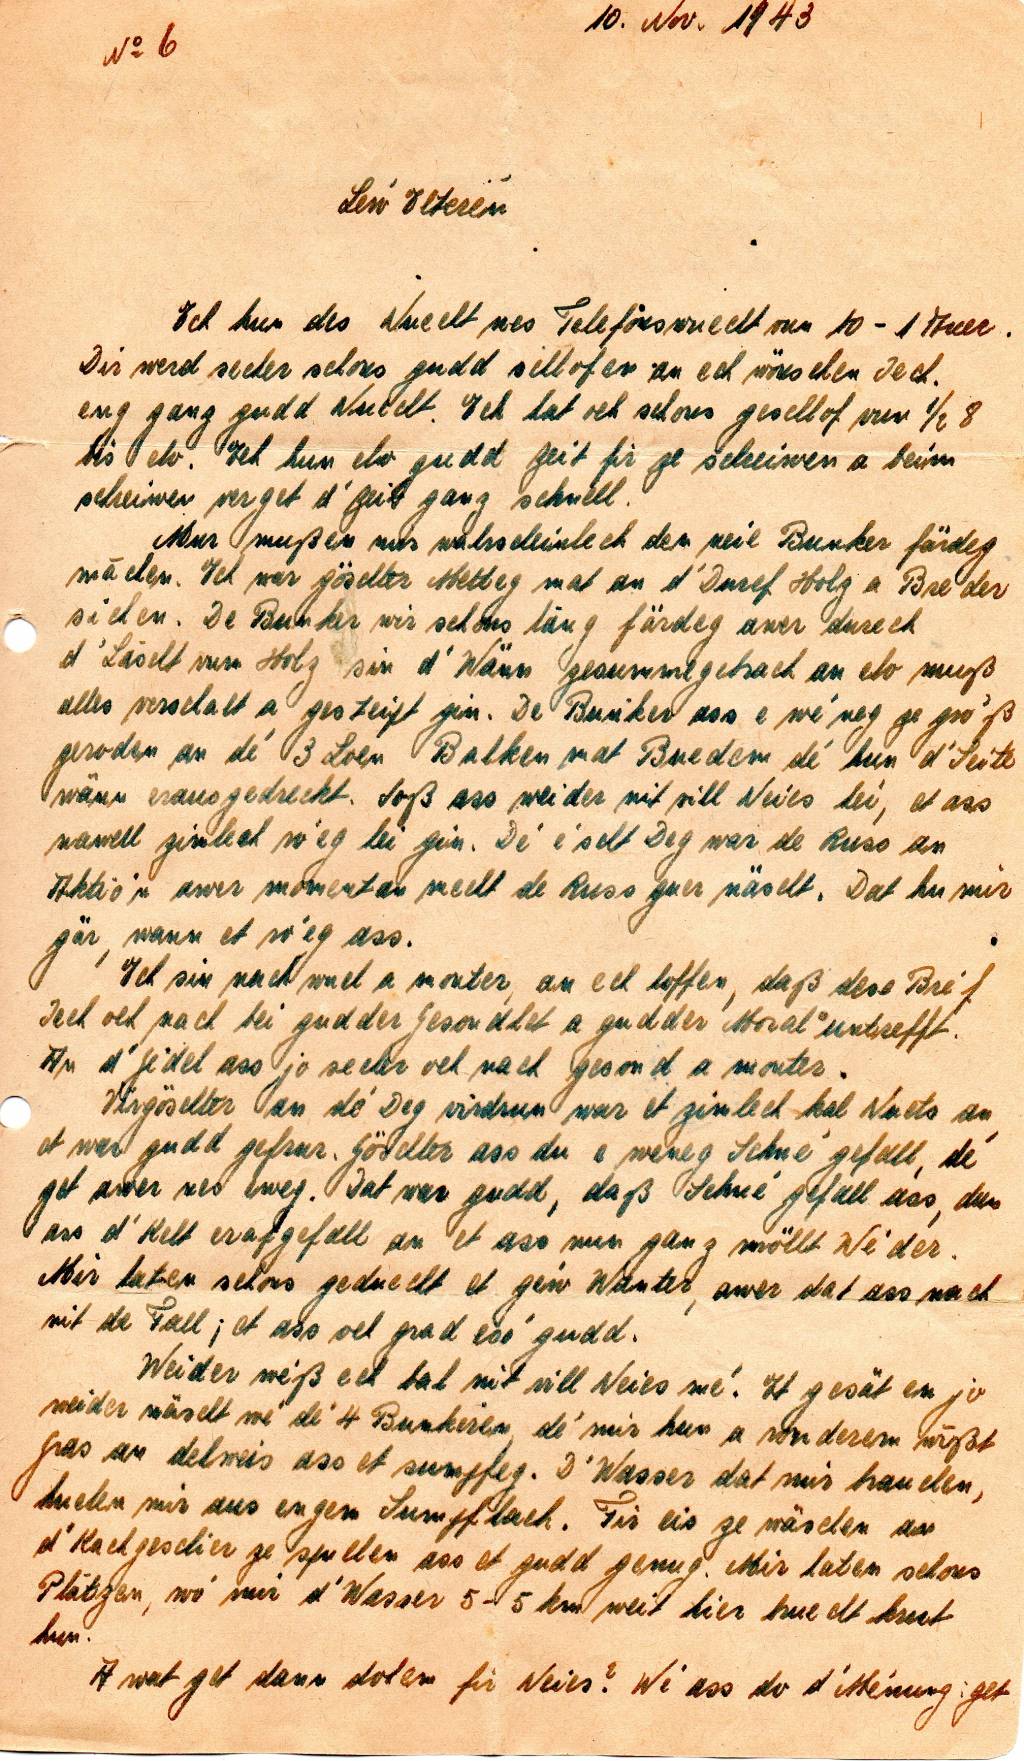 10. Nov. 1943
No 6
Léiw Elteren
Ech hun des Nuecht nes Telefónswuecht vun 10 - 1 Auer.
Dir werd secher schons gudd schlofen an ech wönschen Iech
eng ganz gudd Nuecht. Ech hat och schons geschlof vun 1/2 8
bis elo. Ech hun elo gudd Zeit fir ze schreiwen a beim
schreiwen verget d'Zeit ganz schnell.
Mur mußen mir wahrscheinlech den neie Bunker färdeg
mächen. Ech war göschter Metteg mat an d'Duref Holz a Breder
sichen. De Bunker wir schons läng färdeg awer durech
d'Läscht vum Holz sin d'Wänn zesummegebrach an elo muß
alles verschalt a gesteipt gin. De Bunker ass e wéneg ze gróß
geroden an dé 3 Loen Balken mat Buedem dé hun d'Seite
wänn erausgedreckt. Soß ass weider nit vill Neies hei, et ass
nawell zimlech róeg hei gin. Dé éischt Deg war de Russ an
Aktión awer momentan mecht de Russ guer näscht. Dat hu mir
gär, wann et róeg ass.
Ech sin nach wuel a monter, an ech hoffen, daß dese Bréf
Iech och nach bei gudder Gesondhet a gudder "Moral" untrefft.
An d'Gidel ass jo secher och nach gesond a monter.
Virgöschter an dé Deg virdrun war et zimlech kal Nuets an
et war gudd gefrur. Göschter ass du e weneg Schné gefall, dé
get awer nes eweg. Dat war gudd, daß Schné gefall ass, dun
ass d'Kelt erafgefall an et ass nun ganz möllt Wéder.
Mir haten schons geduecht et géiw Wanter, awer dat ass nach
nit de Fall; et ass och grad esó gudd.
Weider wéß ech bal nit vill Neies mé. Et gesät en jo
weider näischt wé dé 4 Bunkeren, dé mir hun a ronderem wißt
Gras an delweis ass et sumpfeg. D'Wasser dat mir brauchen,
huelen mir aus engem Sumpflach. Fir eis ze wäschen an
d'Kachgeschier ze spullen ass et gudd genug. Mir haten schons
Plätzen, wó mir d'Wasser 5-5 km weit hier bruecht krut
hun.
A wat get dann dohem fir Neies? Wé ass do d'Ménung: get